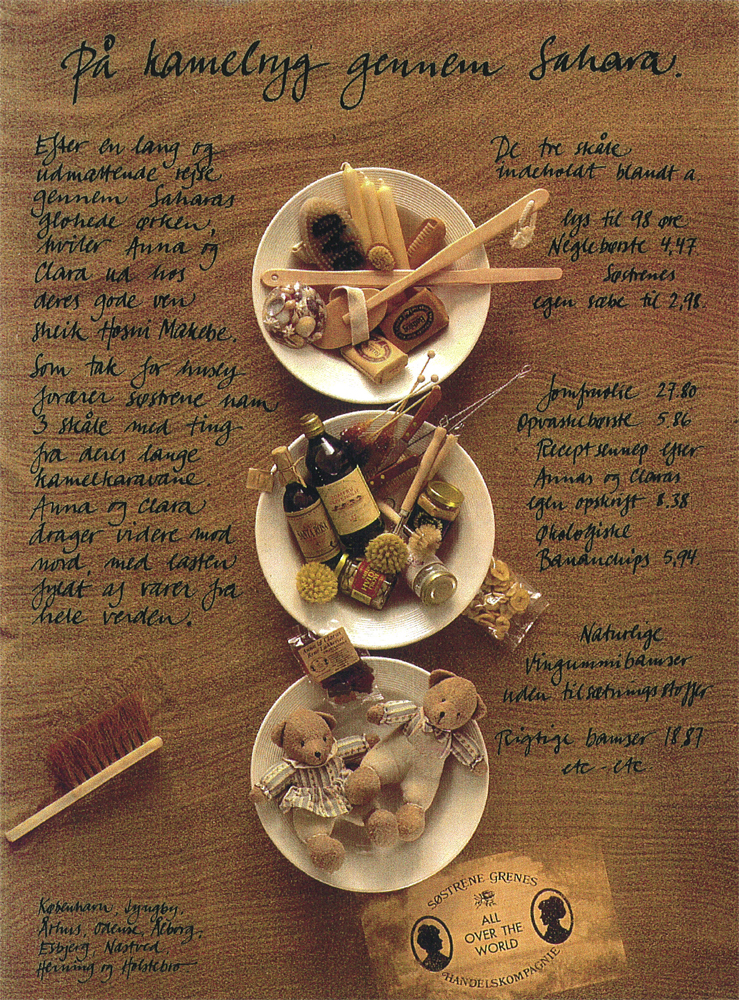 På kamelryg gennem Sahara.
Efter en lang og
udmattende rejse
gennem Saharas
glohede ørken,
hviler Anna og
Clara ud hos
deres gode ven
sheik Hosni Makebe.
Som tak for husly
forærer søstrene ham
3 skåle med ting
fra deres lange
kamelkaravane.
Anna og Clara
drager videre mod
nord, med lasten
fyldt af varer fra
hele verden.
De tre skåle
indeholdt blandt a.
lys til 98 øre
Neglebørste 4,47
Søstrenes
egen sæbe til 2,98.
Jomfruolie 27.80
Opvaskebørste 5.86
Recept sennep efter
Annas og Claras
egen opskrift 8.38
Økologiske
Bananchips 5,94.
Naturlige
Vingummibamser
uden tilsætningsstoffer
Rigtige bamser 18.87
etc - etc
København, Lyngby,
Århus, Odense, Ålborg,
Esbjerg, Næstved
Herning og Holstebro
SØSTRENE GRENES
ALL
OVER THE
WORLD
HANDELSKOMPAGNIE